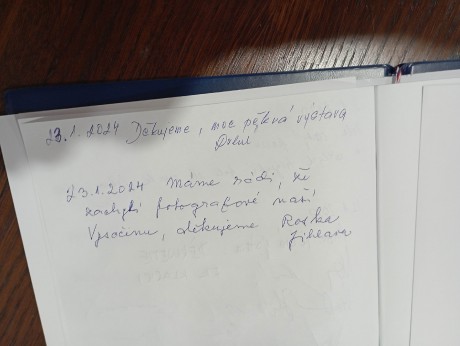 23.1.2024 Děkujeme, moc pěkná výstava
23.1.2024 Máme rádi, že
zachytí fotografové naši
Vysočinu, děkujeme
Jihlava